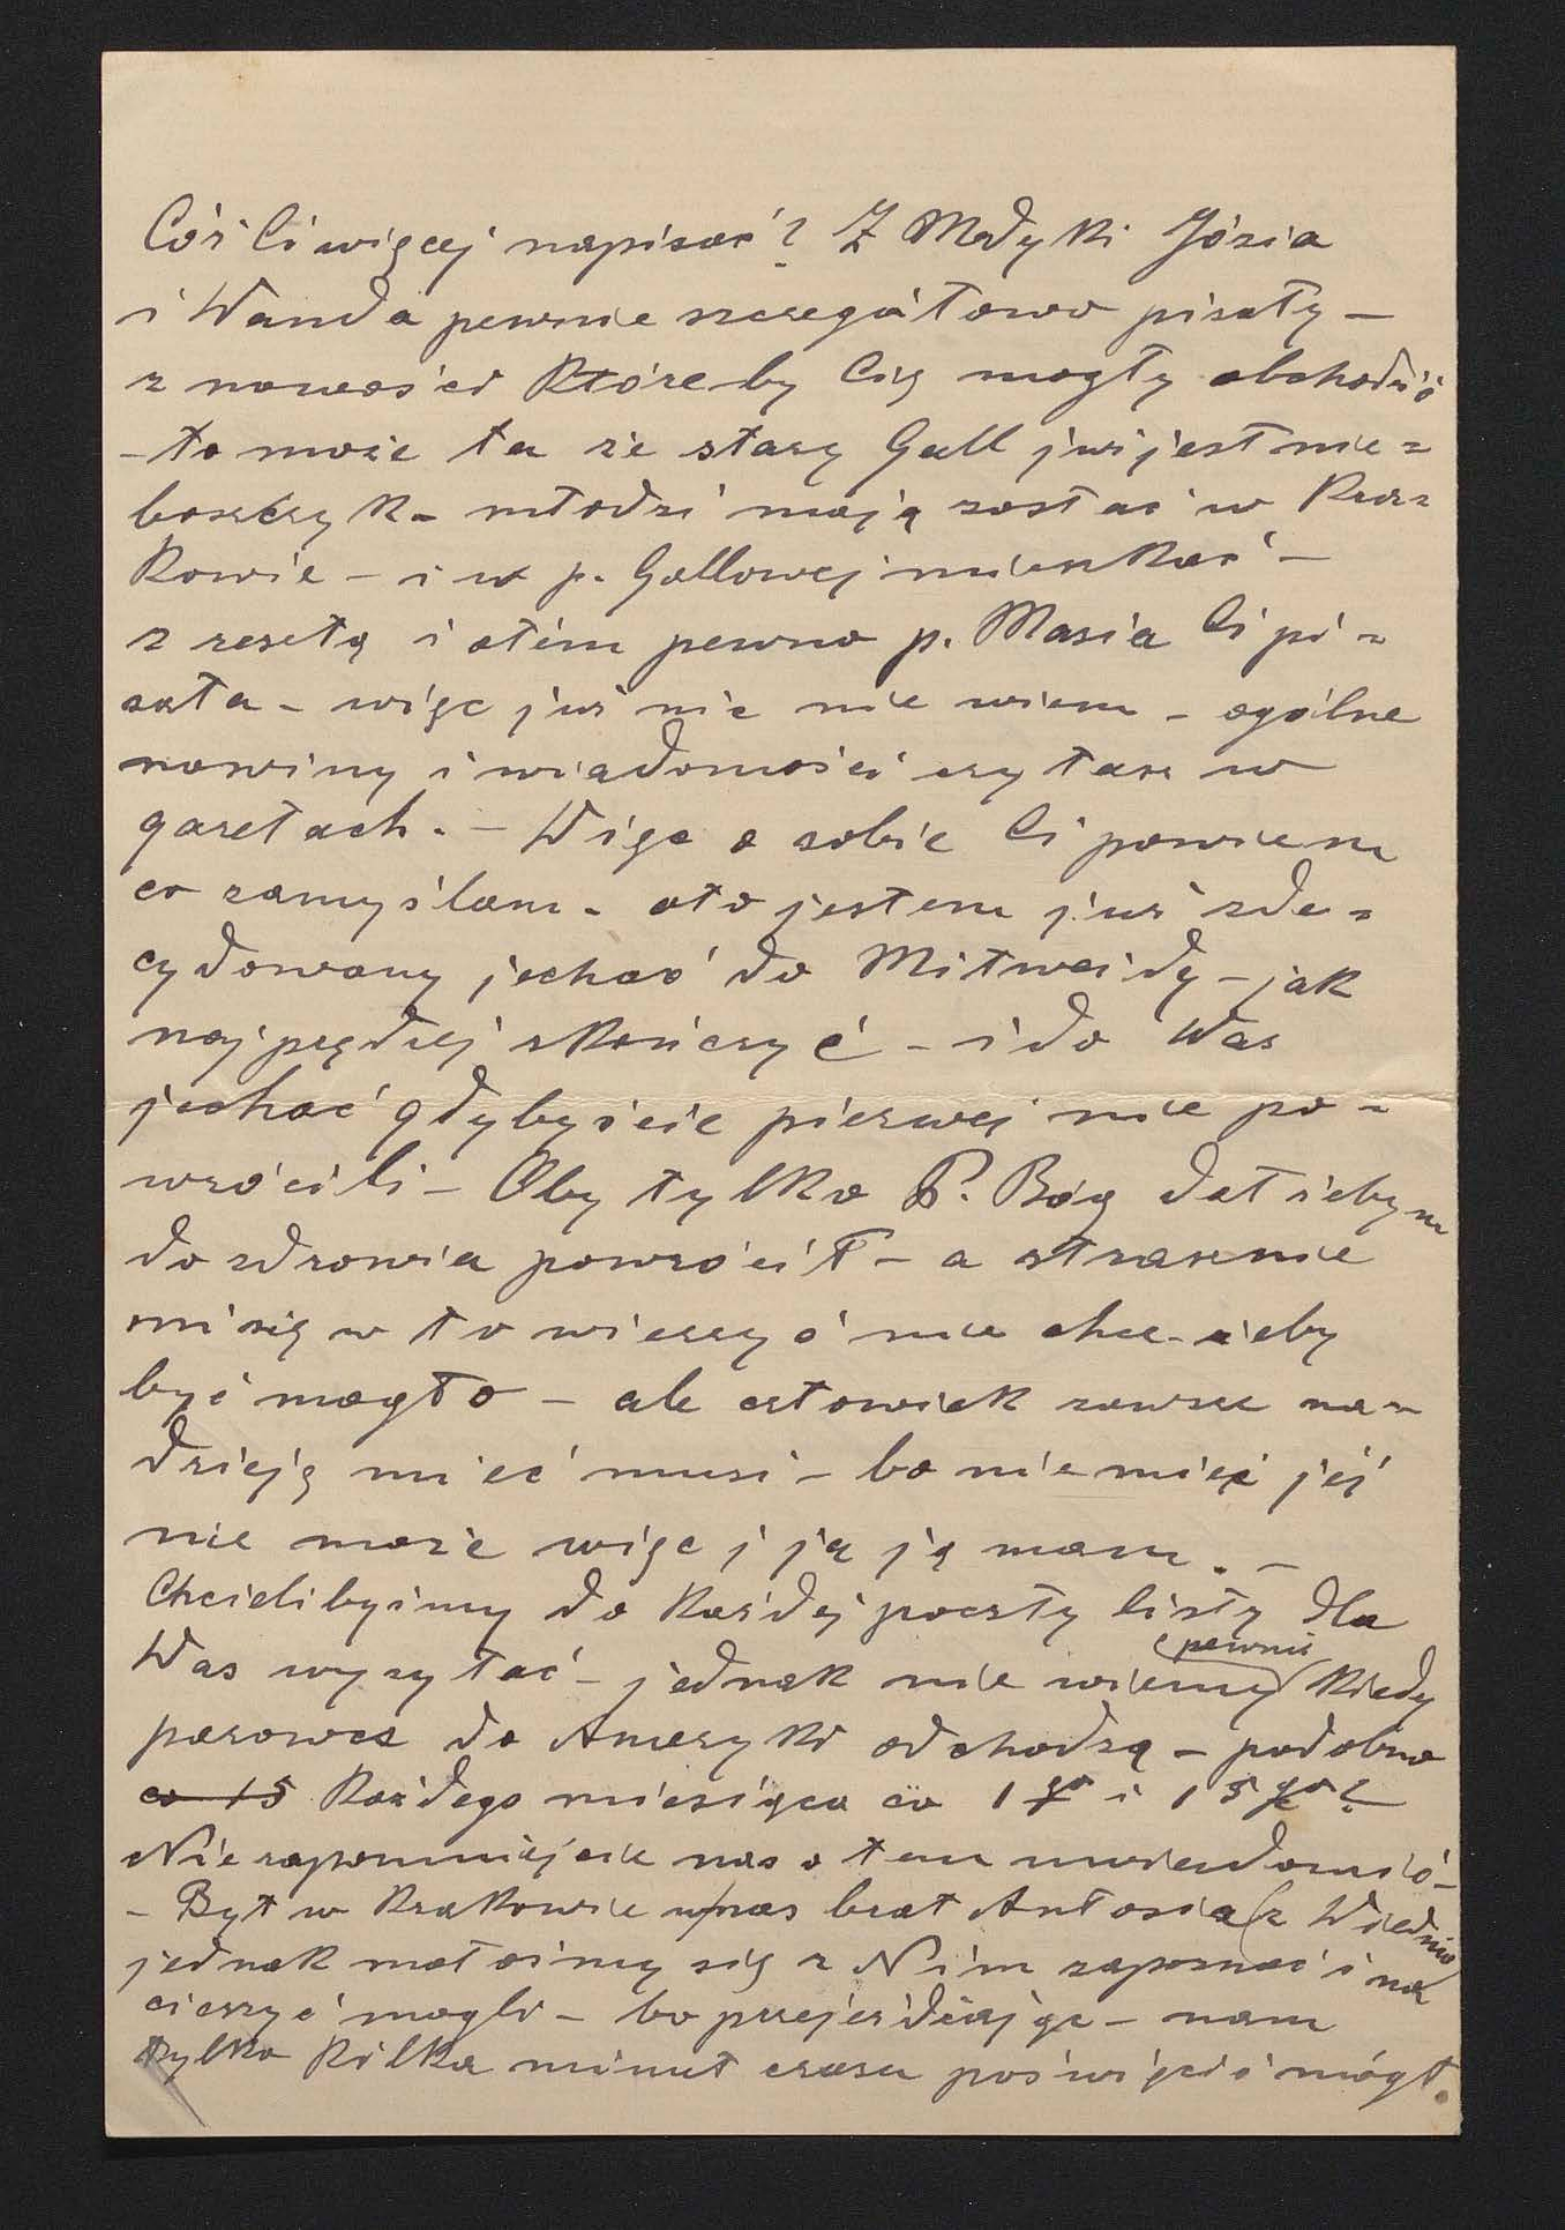 Cóż Ci więcej napisać? Z Medyki Józia
i Wanda pewnie szczegółowo pisały –
z nowości któreby Cię mogły obchodzić
– to może ta że stary Gall już jest nie=
boszczyk – młodzi mają zostać w Kra=
kowie – i w p. Gallowej mieszkać –
z resztą i otém pewno p. Masia Ci pi=
sała – więc już nic nie wiem – ogólne
nowiny i wiadomości czytasz w
gazetach. – Więc o sobie Ci powiem
co zamyślam – oto jestem już zde=
cydowany jechać do Mitweidy – jak
najprędzej skończyć – i do Was
jechać gdybyście pierwej nie po=
wrócili – Oby tylko P. Bóg dał żebym
do zdrowia powrócił – a strasznie
mi się w to wierzyć nie chce – żeby
być mogło – ale człowiek zawsze na=
dzieję mieć musi – bo nie mieć jéj
nie może więc i ja ją mam. –
Chcielibyśmy do każdej poczty listy dla
Was wysyłać – jednak nie wiemy pewnie kiedy
parowce do Ameryki odchodzą – podobno
co 15 każdego miesiąca co 1go i 15go?
Nie zapomnijcie nas o tem uwiadomić –
– Był w Krakowie u nas brat Antosia z Wiednia
jednak małośmy się z Nim zapoznać i na
cieszyć mogli – bo przejeżdżając – nam
tylko kilka minut czasu poświęcić mógł.